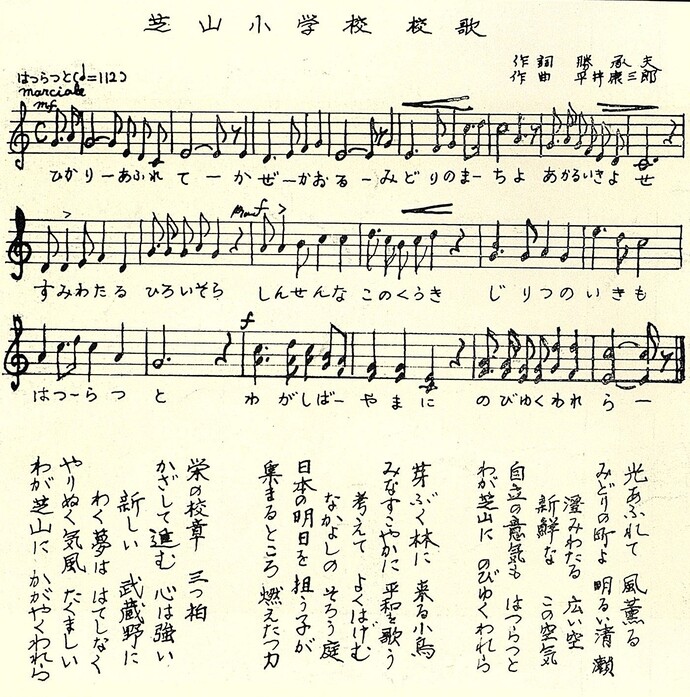 芝山小学校 校歌
作詞 勝 承夫
作曲 平井康三郎
はつらつと(♩=112)
marciale
mf
ひかりーあふれてーかぜーかおるーみどりのまーちよあかるいきよせ
すみわたるひろいそらしんせんなこのくうきじりつのいきも
f
はつーらつとわがしばーやまにのびゆくわれらー
光あふれて 風薫る
みどりの町よ 明るい清瀬
澄みわたる 広い空
新鮮な この空気
自立の意気も はつらつと
わが芝山に のびゆくわれら
芽ぶく林に 来る小鳥
みなすこやかに 平和を歌う
考えて よくはげむ
なかよしの そろう庭
日本の明日を 担う子が
集まるところ 燃えたつ力
栄の校章 三つ柏
かざして進む 心は強い
新しい 武蔵野に
わく夢は はてしなく
やりぬく気風 たくましい
わが芝山に かがやくわれら